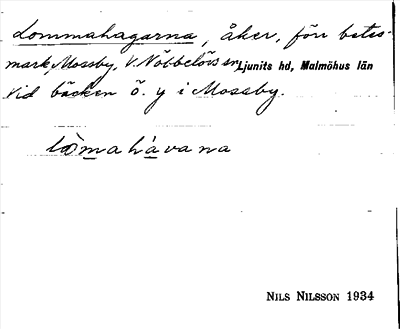 Lommahagarna, åker, förr betes-
mark, Mossby, V. Nöbbelövs sn, Ljunits hd, Malmöhus län
Vid bäcken ö. y i Mossby.
lòmahávana
NILS NILSSON 1934